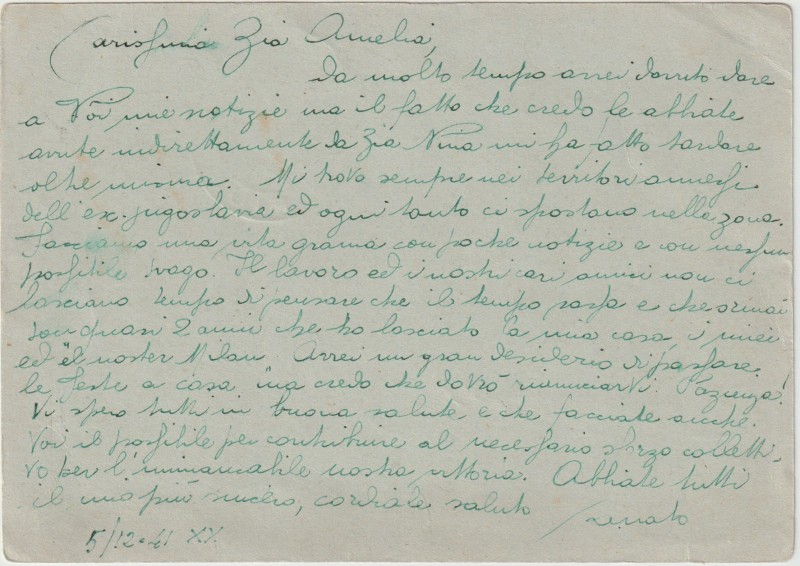 Carissima Zia Amelia,
da molto tempo avrei dovuto dare
a Voi mie notizie ma il fatto che credo le abbiate
avute indirettamente da Zia Nina mi ha fatto tardare
oltre misura. Mi trovo sempre nei territori annessi
dell'ex jugoslavia ed ogni tanto ci spostano nelle zona.
Facciamo una vita grama con poche notizie e con nessun
possibile svago. Il lavoro ed i nostri cari amici non ci
lasciano tempo di pensare che il tempo passa e che ormai
son quasi 2 anni che ho lasciato la mia casa, i miei
ed "el noster Milan. Avrei un gran desiderio di passare
le feste a casa ma credo che dovrò rinunciarvi. Pazienza!
Vi spero tutti in buona salute, e che facciate anche
Voi il possibile per contribuire al necessario sforzo colletti-
vo per l'immancabile nostra vittoria. Abbiate tutti
il mio più cordiale saluto
Renato
5/12-41 XX.